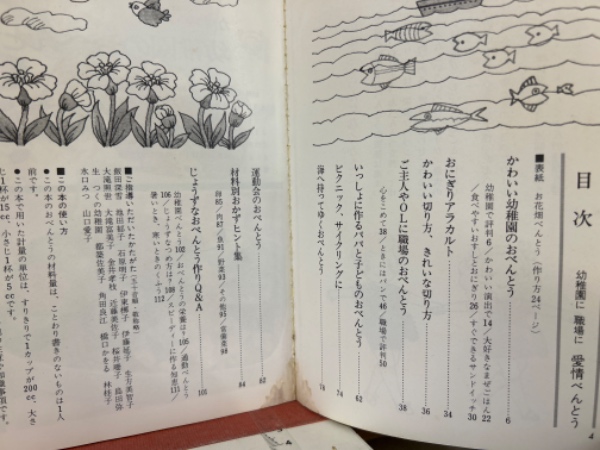 目次
幼稚園に 職場に 愛情べんとう
■表紙 お花畑べんとう(作り方24ページ)
かわいい幼稚園のおべんとう 6
幼稚園で評判6/かわいい演出で14/大好きなまぜごはん22
/食べやすいおすしとおにぎり26/すぐできるサンドイッチ30
おにぎりアラカルト 34
かわいい切り方、きれいな切り方 36
ご主人やOLに職場のおべんとう 38
心をこめて38/ときにはパンで46/職場で評判50
いっしょに作るパパと子どものおべんとう 62
ピクニック、サイクリングに 74
海へ持ってゆくおべんとう 78
4
運動会のおべんとう 82
材料別おかずヒント集 84
卵85/肉87/魚91/野菜93/その他95/常備菜98
じょうずなおべんとう作りQ&A 101
幼稚園べんとう102/おべんとうの栄養は?105/通勤べんとう
106/じょうずなつめ方は?108/スピーディーに作る知恵111/
暑いときいたいときのくふう112
■ご指導いただいたかたがた(五十音順・敬称略)
飯田深雪 池田郁子 石原明子 伊東櫻子 伊藤延子 生方美智子
大滝照栄 大滝富美子 金井孝枝 近藤美佐子 桜井瓊子 島田弥
生 つくの幼稚園 都築佐美子 角田良江 橋口かをる 林桂子
水口みつ 山口愛子
■この本の使い方
●この本のおべんとうの材料量は、ことわり書きのないものは1人
前です。
●この本で用いた計量の単位は、すりきりで1カップが200cc、大さ
じ1杯が15cc、小さじ1杯が5ccです。